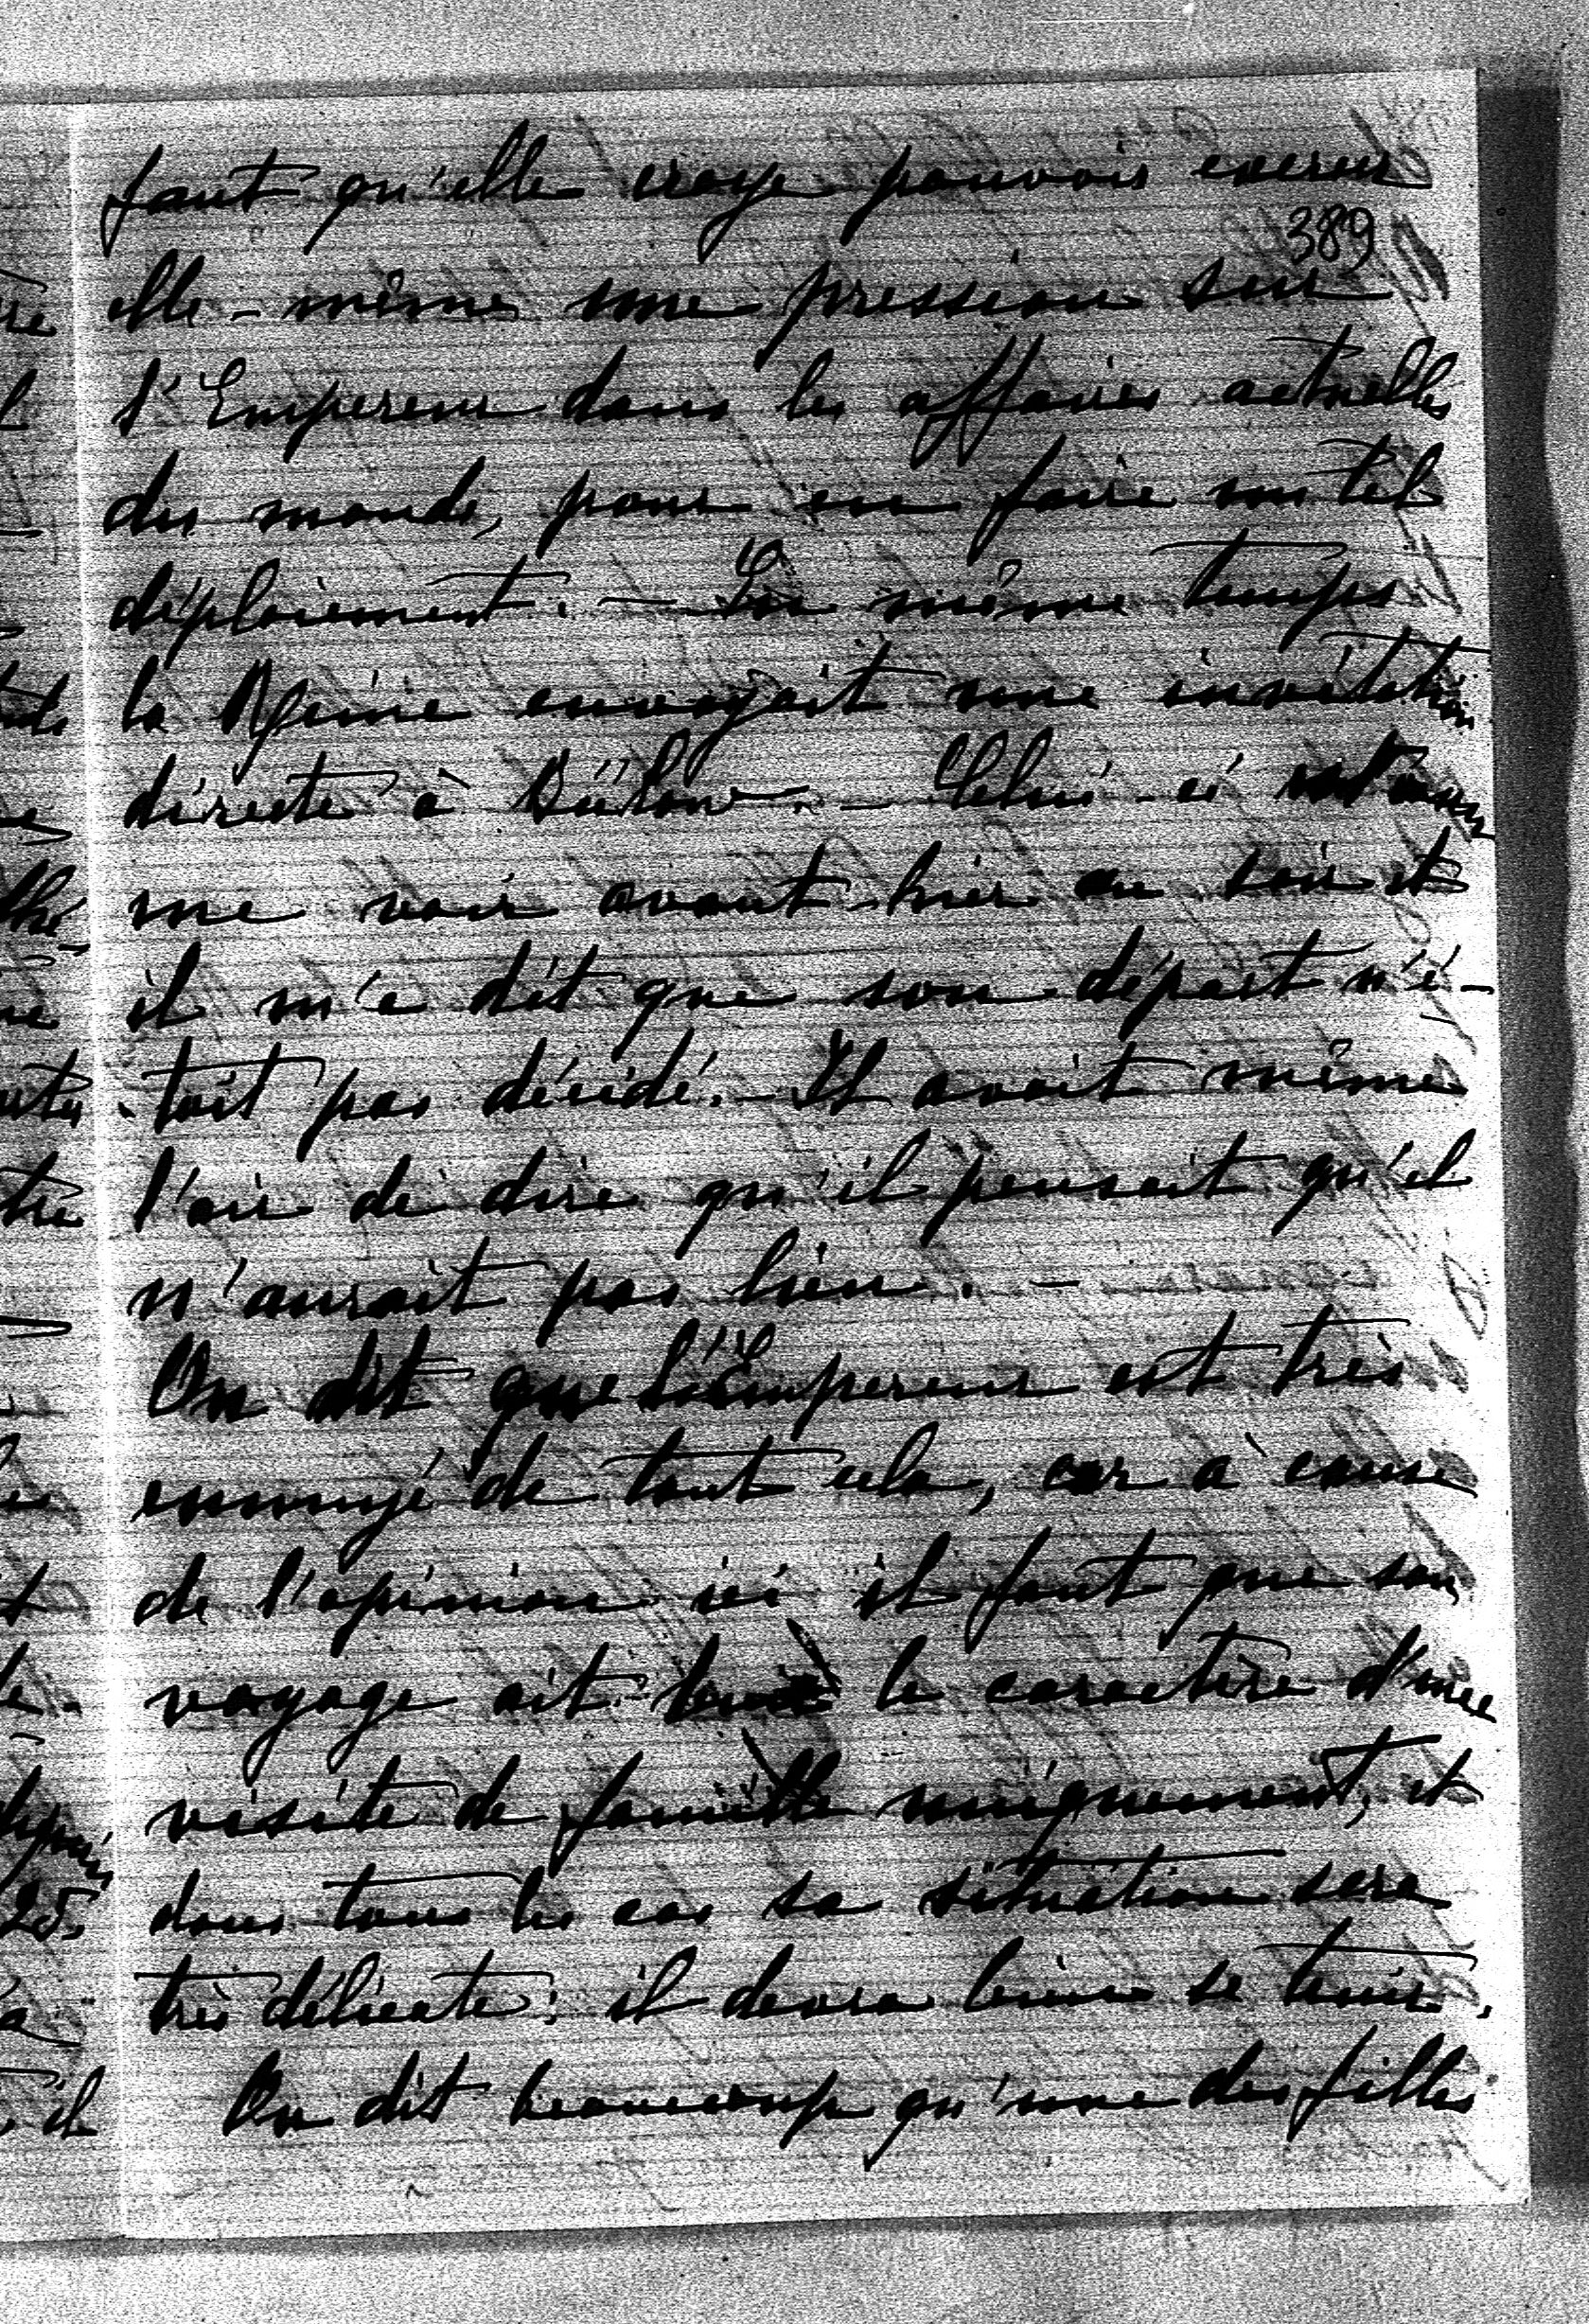 faut qu'elle croye pouvoir exercer
389
elle-même une pression sur
l'Empereur dans les affaires actuelles
du monde, pour en faire un tel
déploiement. — En même temps
la Reine envoyait une invitation
directe à Bülow. — Celui-ci
me voir avant-hier au soir et
il m'a dit que son départ n'é-
tait pas décidé. — Il avait même
l'air de dire qu'il pensait qu'il
n'aurait pas lieu. —
On dit que l'Empereur est très
ennuyé de tout cela, car à cause
de l'opinion ici il faut que son
voyage ait le caractère d'une
visite de famille uniquement, et
dans tous les cas sa situation sera
très délicate: il devra bien se tenir.
On dit beaucoup qu'une des filles